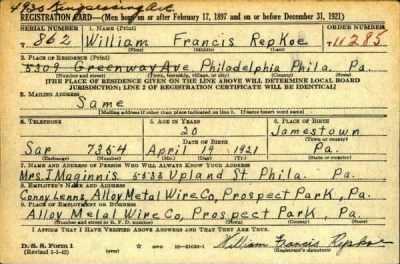 4935 Kingsessing Ave.
REGISTRATION CARD—(Men born on or after February 17, 1897 and on or before December 31, 1921)
SERIAL NUMBER 1. NAME (Print) ORDER NUMBER
T 862 William Francis Repkoe T11285
(First) (Middle) (Last)
2. PLACE OF RESIDENCE (Print)
5309 Greenway Ave. Philadelphia Phila. Pa.
(Number and street) (Town, township, village, or city) (County) (State)
[THE PLACE OF RESIDENCE GIVEN ON THE LINE ABOVE WILL DETERMINE LOCAL BOARD
JURISDICTION; LINE 2 OF REGISTRATION CERTIFICATE WILL BE IDENTICAL]
3. MAILING ADDRESS
Same
[Mailing address if other than place indicated on line 2. If same insert word same]
4. TELEPHONE 5. AGE IN YEARS 6. PLACE OF BIRTH
20 Jamestown
DATE OF BIRTH
Sar 7354 April 19 1921 Pa.
(Exchange) (Number) (Mo.) (Day) (Yr.) (State or country)
7. NAME AND ADDRESS OF PERSON WHO WILL ALWAYS KNOW YOUR ADDRESS
Mrs. J Maginnis 5533 Upland St Phila. Pa.
8. EMPLOYER'S NAME AND ADDRESS
Alloy Metal Wire Co, Prospect Park, Pa.
9. PLACE OF EMPLOYMENT OR BUSINESS
Alloy Metal Wire Co, Prospect Park, Pa.
(Number and street or R. F. D. number) (Town) (County) (State)
I AFFIRM THAT I HAVE VERIFIED ABOVE ANSWERS AND THAT THEY ARE TRUE.
D. S. S. Form 1
(Revised 1-1-42) (over) 16—21630-1 William Francis Repkoe
(Registrant's signature)